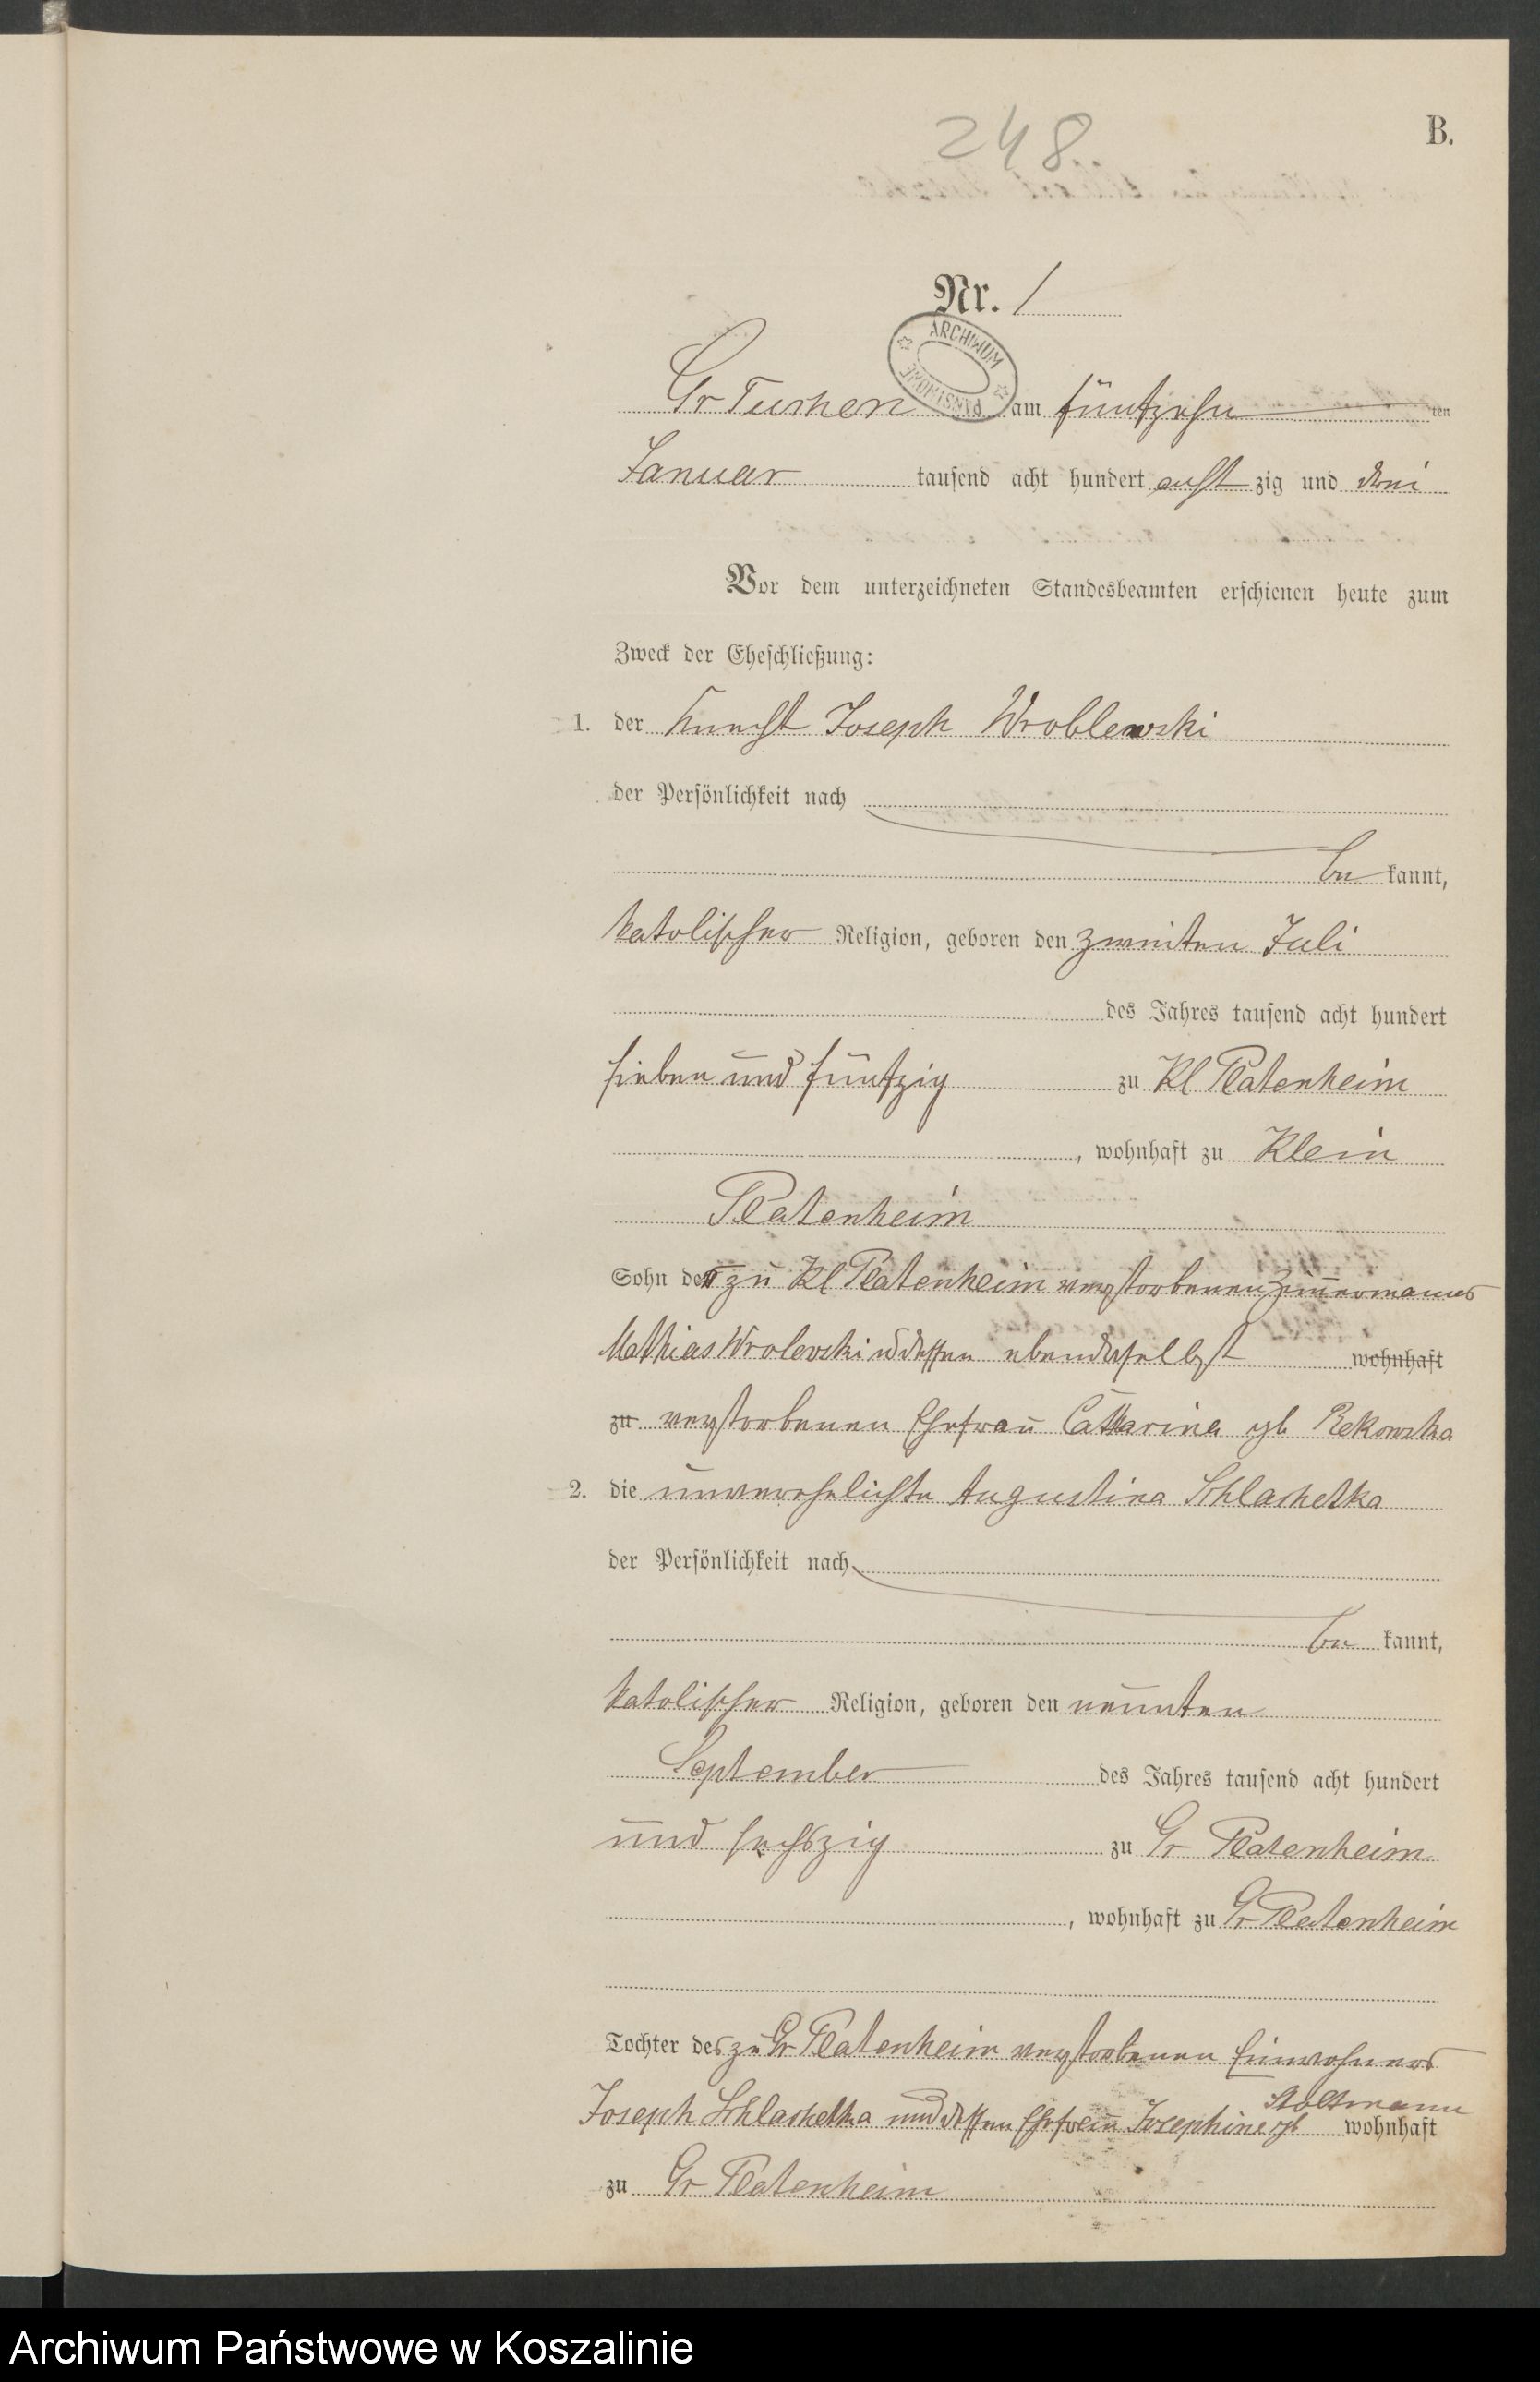 248.
B.
Nr. 1
ARCHIWUM PAŃSTWOWE
Gr Tuchen am fünfzehn ten
Januar tausend acht hundert acht zig und drei
Vor dem unterzeichneten Standesbeamten erschienen heute zum
Zweck der Eheschließung:
1. der Knecht Joseph Wroblewski
der Persönlichkeit nach
be kannt,
katolischer Religion, geboren den zweiten Juli
des Jahres tausend acht hundert
sieben und fünfzig zu Kl Platenheim
, wohnhaft zu Klein
Platenheim
Sohn des zu Kl Platenheim verstorbenen Zimmermanns
Mathias Wrolevski u dessen ebendaselbst wohnhaft
zu verstorbenen Ehefrau Catharina gb Rekowska
2. die unverehelichte Augustina Schlachetka
der Persönlichkeit nach
be kannt,
katolischer Religion, geboren den neunten
September des Jahres tausend acht hundert
und sechszig zu Gr Platenheim
, wohnhaft zu Gr Platenheim
Tochter des zu Gr Platenheim verstorbenen Einwohners
Joseph Schlachetka und dessen Ehefrau Josephine gb Stoltmann wohnhaft
zu Gr Platenheim
Archiwum Państwowe w Koszalinie